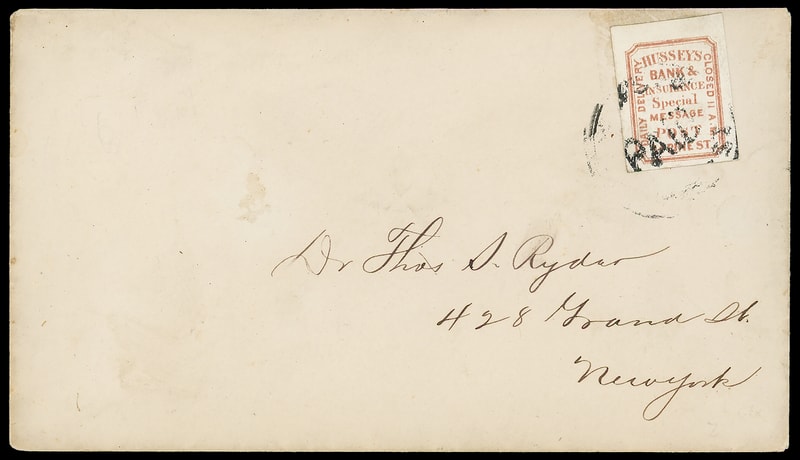 HUSSEY'S
BANK &
INSURANCE
Special
MESSAGE
POST
PINE ST.
DAILY DELIVERY
CLOSED 11 A.M.
PAID
Dr Thos S. Ryder
428 Grand St.
New york